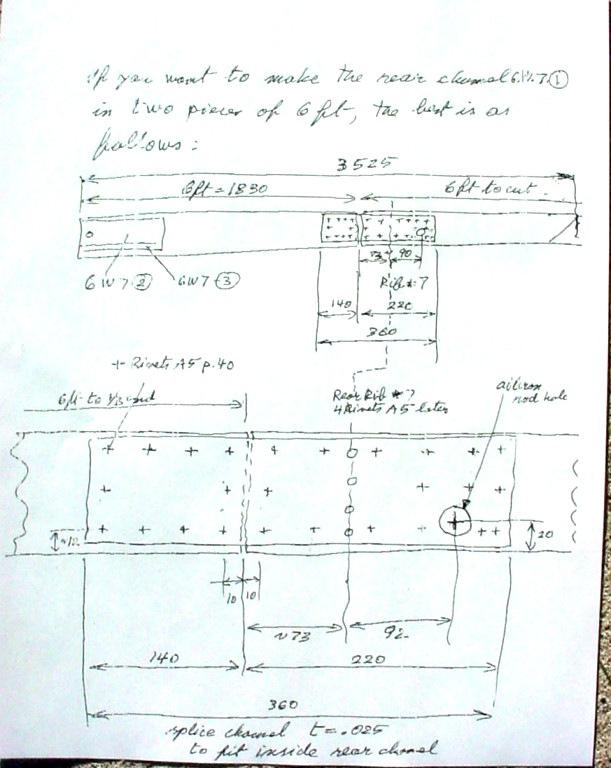 If you want to make the rear channel 6W7①
in two pieces of 6 ft, the best is as
follows:
3525
6ft = 1830
6ft to cut
73
90
6W7②
6W7③
Rib # 7
140
220
360
+ Rivets A5 p. 40
aileron
rod hole
6ft to cut
Rear Rib # 7
4 Rivets A5 later
~10
20
10
10
~73
92
140
220
360
splice channel t = .025
to fit inside rear channel